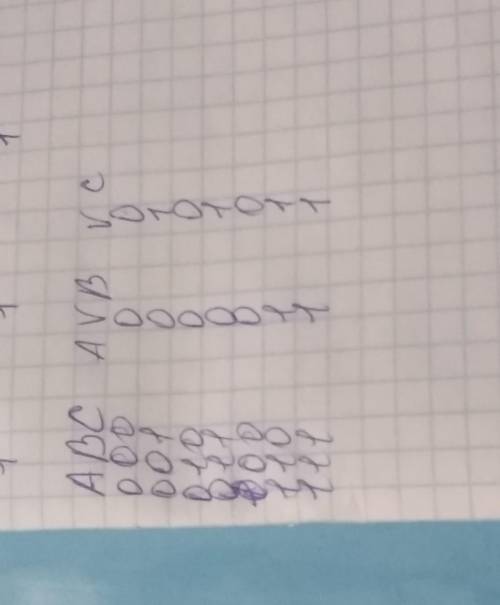 1 1 1
A B C A V B V C
0 0 0 0 0
0 0 1 0 1
0 1 0 0 0
0 1 1 0 1
0 0 0 0
1 1 0 1 1
1 1 1 1 1